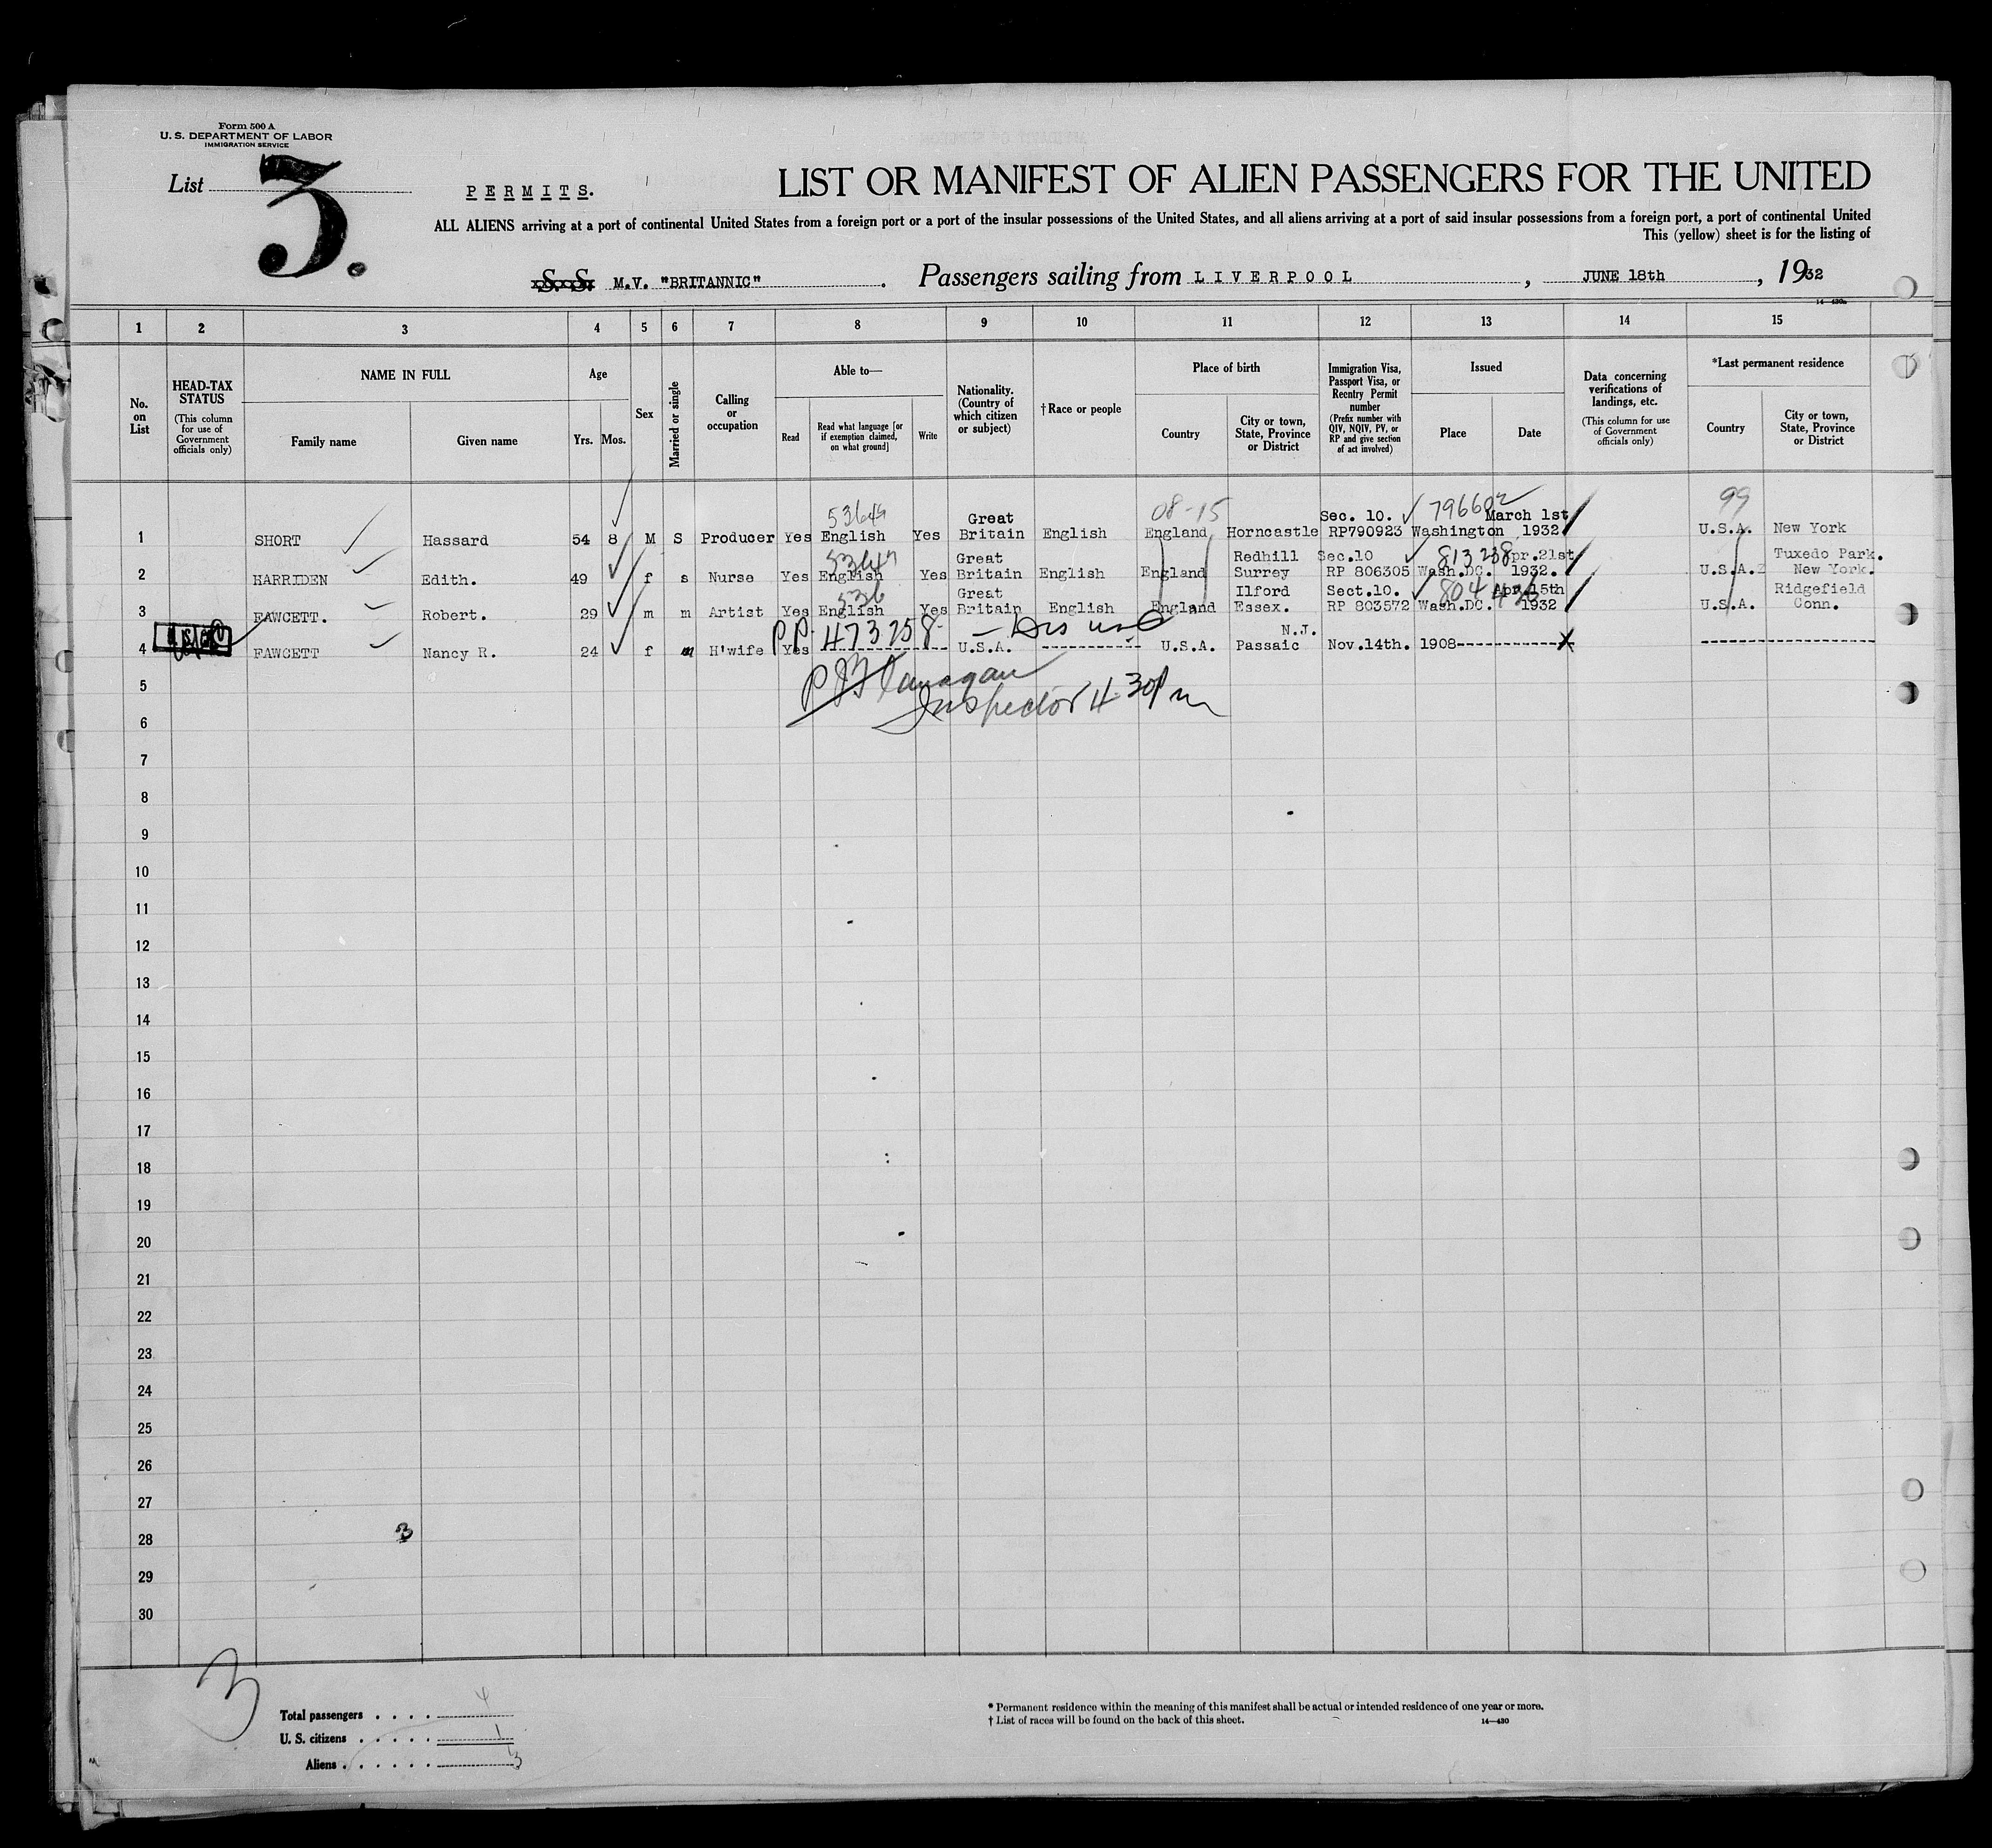 Form 500 A
U. S. DEPARTMENT OF LABOR
IMMIGRATION SERVICE
List 3.
PERMITS.
LIST OR MANIFEST OF ALIEN PASSENGERS FOR THE UNITED
ALL ALIENS arriving at a port of continental United States from a foreign port or a port of the insular possessions of the United States, and all aliens arriving at a port of said insular possessions from a foreign port, a port of continental United
This (yellow) sheet is for the listing of
S. S. M.V. "BRITANNIC" . Passengers sailing from LIVERPOOL , JUNE 18th , 1932
14—430a
1 2 3 4 5 6 7 8 9 10 11 12 13 14 15
No. on List
HEAD-TAX STATUS
(This column for use of Government officials only)
NAME IN FULL
Family name Given name
Age
Yrs. Mos.
Sex
Married or single
Calling or occupation
Able to—
Read
Read what language [or if exemption claimed, on what ground]
Write
Nationality. (Country of which citizen or subject)
†Race or people
Place of birth
Country
City or town, State, Province or District
Immigration Visa, Passport Visa, or Reentry Permit number
(Prefix number with QIV, NQIV, PV, or RP and give section of act involved)
Issued
Place Date
Data concerning verifications of landings, etc.
(This column for use of Government officials only)
*Last permanent residence
Country
City or town, State, Province or District
53649 08-15 796602 99
Great Sec. 10. March 1st
1 SHORT Hassard 54 8 M S Producer Yes English Yes Britain English England Horncastle RP790923 Washington 1932 U.S.A. New York
53649 Great Redhill Sec.10 813238 Apr.21st Tuxedo Park.
2 HARRIDEN Edith. 49 f s Nurse Yes English Yes Britain English England Surrey RP 806305 Wash.DC. 1932. U.S.A. New York.
536 Great Ilford Sect.10. 804436 Apr 15th Ridgefield
3 FAWCETT. Robert. 29 m m Artist Yes English Yes Britain English England Essex. RP 803572 Wash.DC. 1932 U.S.A. Conn.
P.P. 473758 N.J.
4 FAWCETT Nancy R. 24 f m H'wife Yes ---------- U.S.A. ---------- U.S.A. Passaic Nov.14th. 1908---------- ----------
P J Flanagan
Inspector 4 30 Pm
5
6
7
8
9
10
11
12
13
14
15
16
17
18
19
20
21
22
23
24
25
26
27
3
28
29
30
3
Total passengers . . . . 4
U. S. citizens . . . . . 1
Aliens . . . . . . 3
* Permanent residence within the meaning of this manifest shall be actual or intended residence of one year or more.
† List of races will be found on the back of this sheet. 14—430